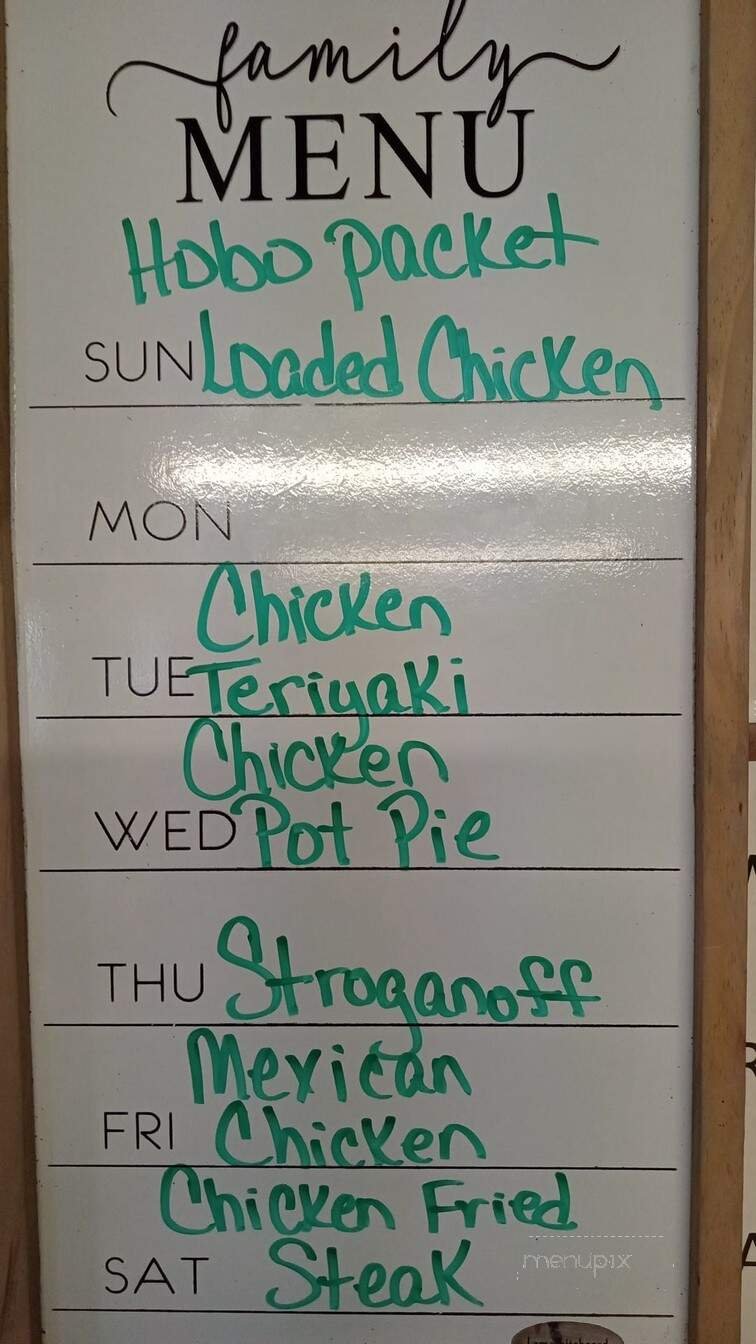 family
MENU
Hobo packet
SUN Loaded Chicken
MON
Chicken
TUE Teriyaki
Chicken
WED Pot Pie
THU Stroganoff
Mexican
FRI Chicken
Chicken Fried
SAT Steak
menupix